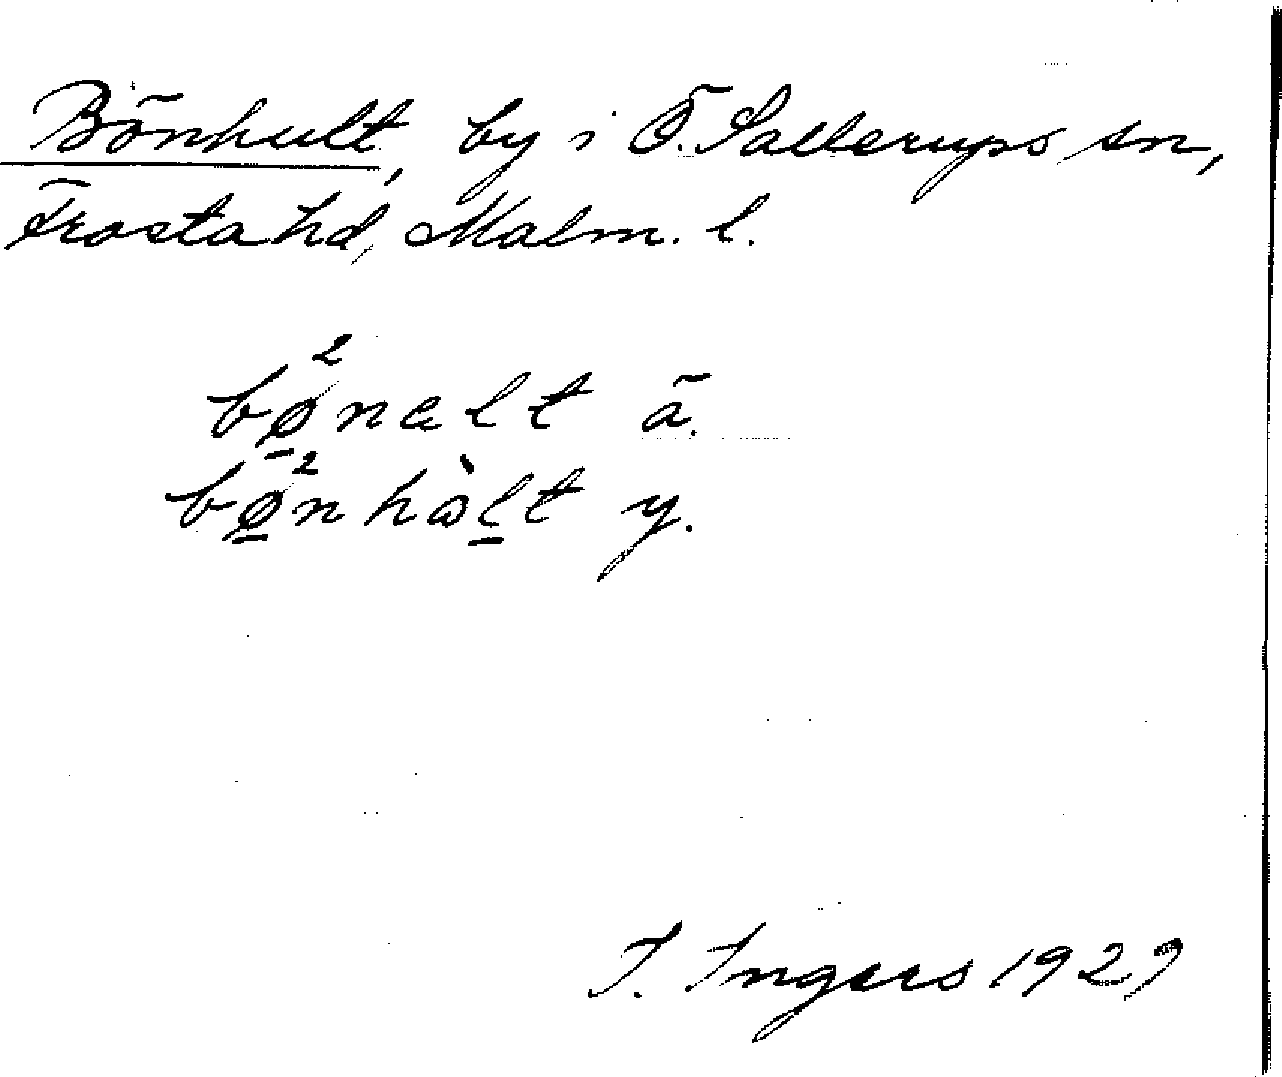 Bönhult, by i Ö. Sallerups sn,
Frosta hd, Malm. l.
bø̱²nælt ä.
bø̱²nhòḻt y.
I. Ingers 1929